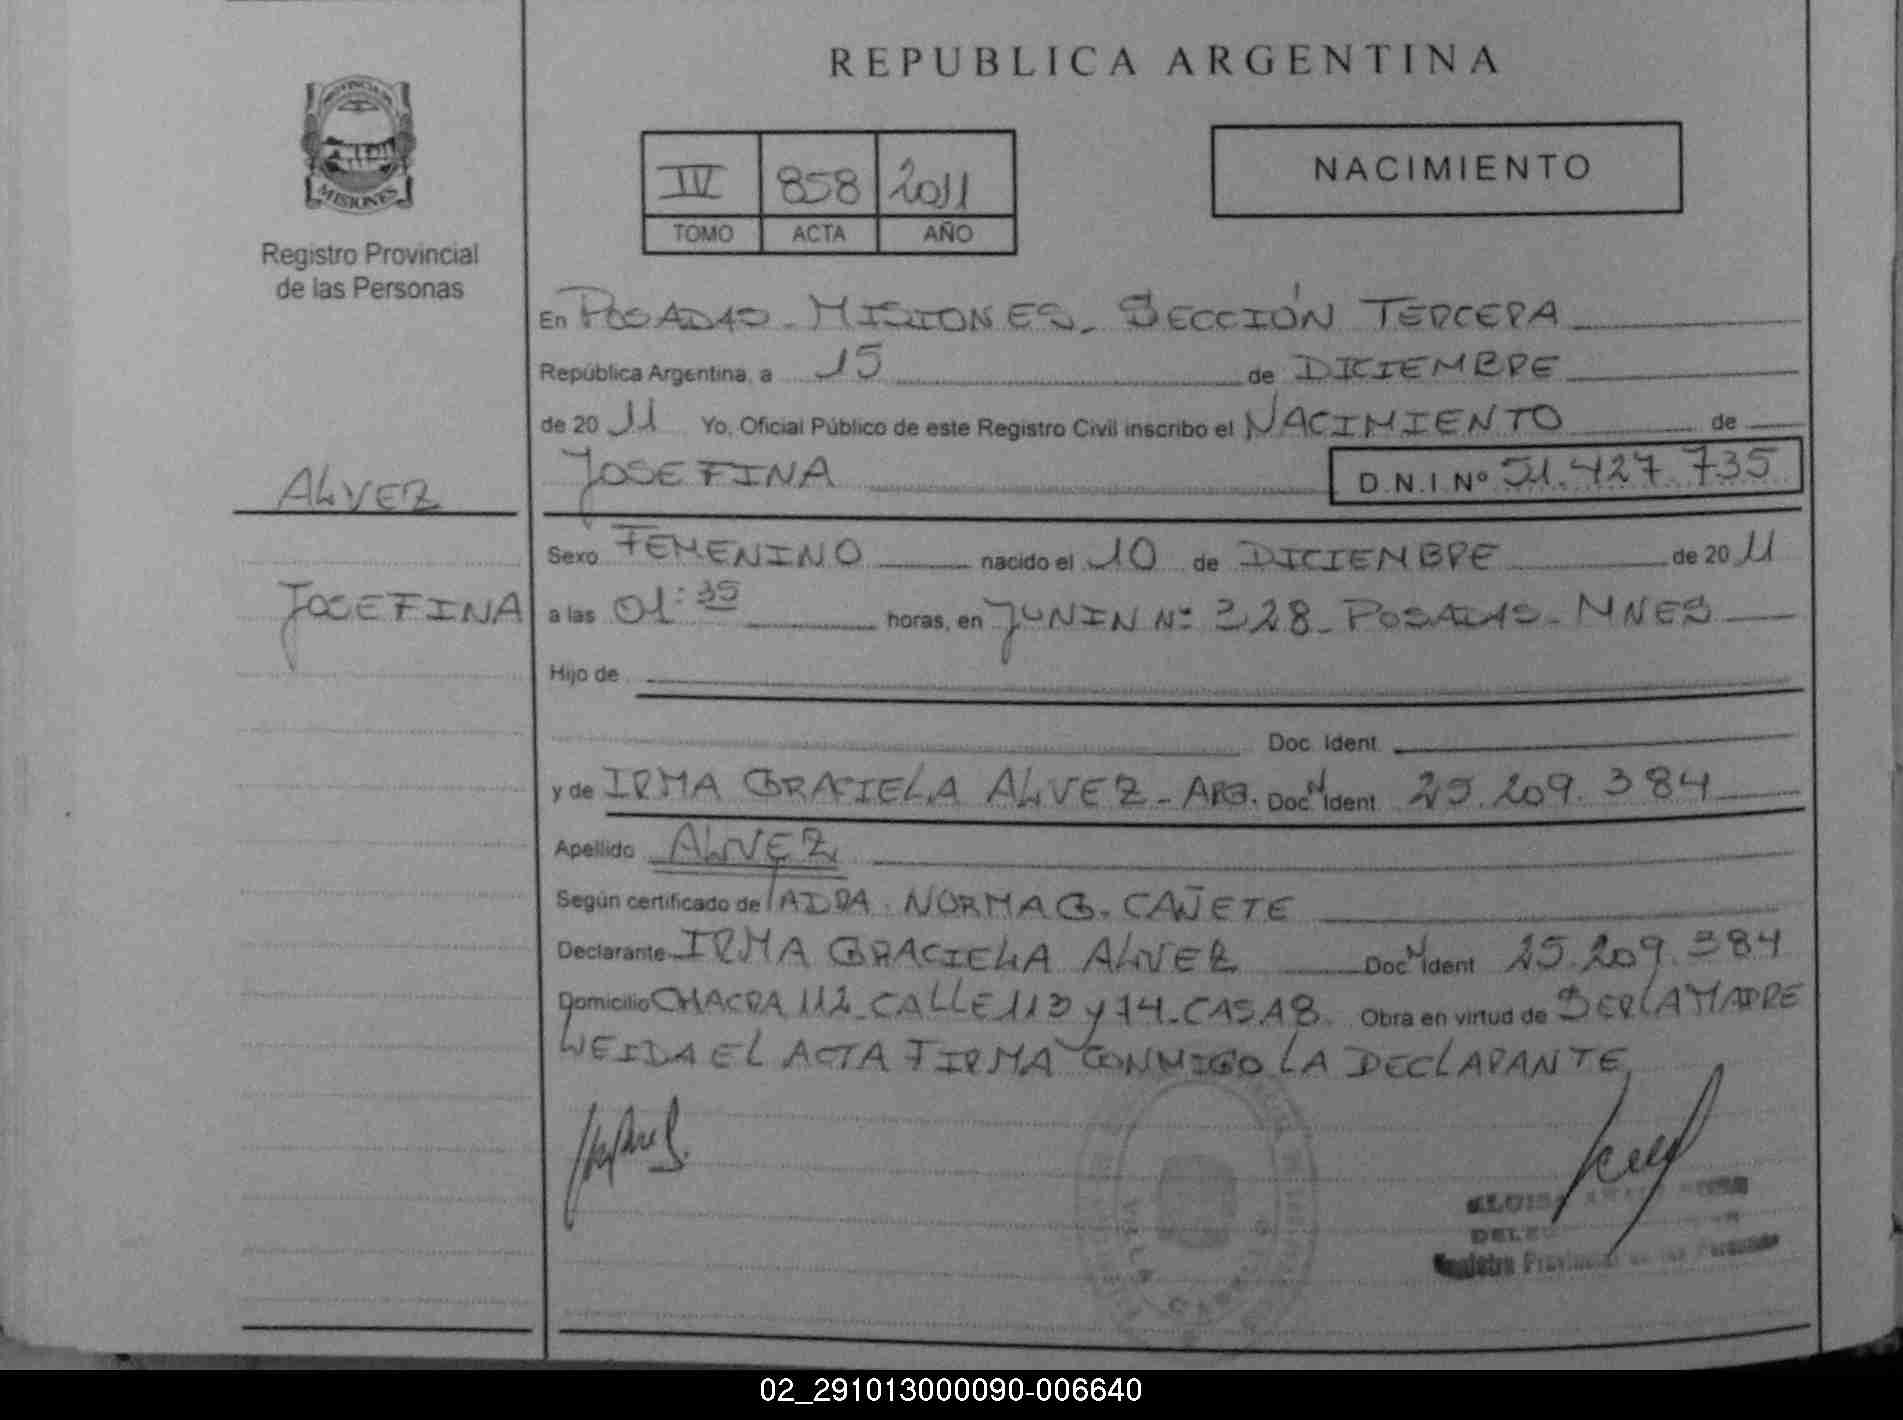 REPUBLICA ARGENTINA
PROVINCIA DE
MISIONES
Registro Provincial
de las Personas
IV 858 2011
TOMO ACTA AÑO
NACIMIENTO
En POSADAS - MISIONES - SECCIÓN TERCERA
República Argentina, a 15 de DICIEMBRE
de 2011 Yo, Oficial Público de este Registro Civil inscribo el NACIMIENTO de
ALVEZ
JOSEFINA D.N.I Nº 51.427.735
Sexo FEMENINO nacido el 10 de DICIEMBRE de 2011
JOSEFINA
a las 01:35 horas, en JUNIN Nº 328 - POSADAS - MNES
Hijo de
Doc. Ident.
y de IRMA GRACIELA ALVEZ - ARG. Doc. N Ident 25.209.384
Apellido ALVEZ
Según certificado de NORMA G. CAÑETE
Declarante IRMA GRACIELA ALVEZ Doc N Ident 25.209.384
Domicilio CHACRA 112 - CALLE 113 y 74 - CASA 8. Obra en virtud de SER LA MADRE
LEIDA EL ACTA FIRMA CONMIGO LA DECLARANTE
Registro Provincial de las Personas
02_291013000090-006640